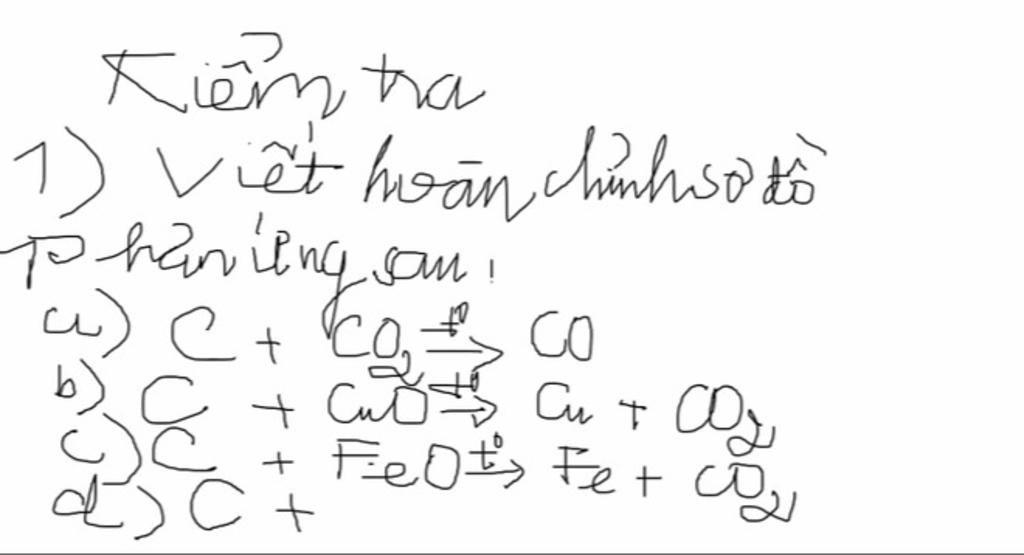 Kiểm tra
1) Viết hoàn chỉnh sơ đồ
Phản ứng sau:
a) C + CO₂ t⁰→ CO
b) C + CuO t⁰→ Cu + CO₂
c) C + FeO t⁰→ Fe + CO₂
d) C +